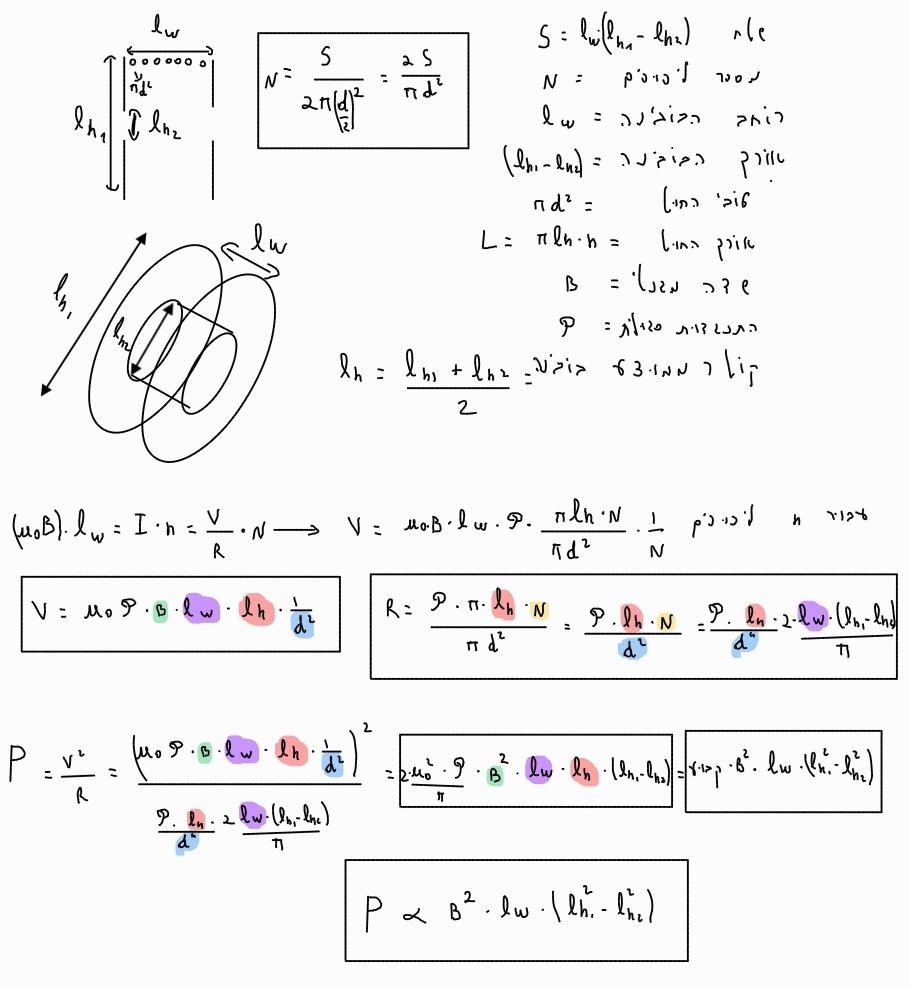 l_w
πd²
l_h1
l_h2
N = S / 2π(d/2)² = 2S / πd²
S = l_w(l_h1 - l_h2) שטח
N = מספר ליפופים
l_w = רוחב הבובינה
(l_h1 - l_h2) = אורך הבובינה
πd² = עובי החוט
L = πl_h·n = אורך החוט
B = שדה מגנטי
ρ = התנגדות סגולית
l_h = (l_h1 + l_h2) / 2 = קוטר ממוצע בובינה
l_w
l_h1
l_h2
(μ₀B)·l_w = I·n = V/R · N ⟶ V = μ₀·B·l_w·ρ· πl_h·N / πd² · 1/N עבור n ליפופים
V = μ₀ρ·B·l_w·l_h· 1/d²
R = ρ·π·l_h·N / πd² = ρ·l_h·N / d² = ρ·l_h / d⁴ · 2·l_w·(l_h1 - l_h2) / π
P = V²/R = (μ₀ρ·B·l_w·l_h· 1/d²)² / (ρ·l_h / d⁴ · 2l_w·(l_h1 - l_h2) / π) = 2·μ₀²·ρ / π · B²·l_w·l_h·(l_h1 - l_h2) = קבוע·B²·l_w·(l²_h1 - l²_h2)
P ∝ B²·l_w·(l²_h1 - l²_h2)